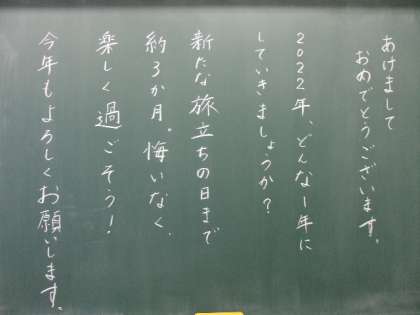 あけまして
おめでとうございます。
2022年、どんな1年に
していきましょうか？
新たな旅立ちの日まで
約3か月。悔いなく、
楽しく過ごそう！
今年もよろしくお願いします。